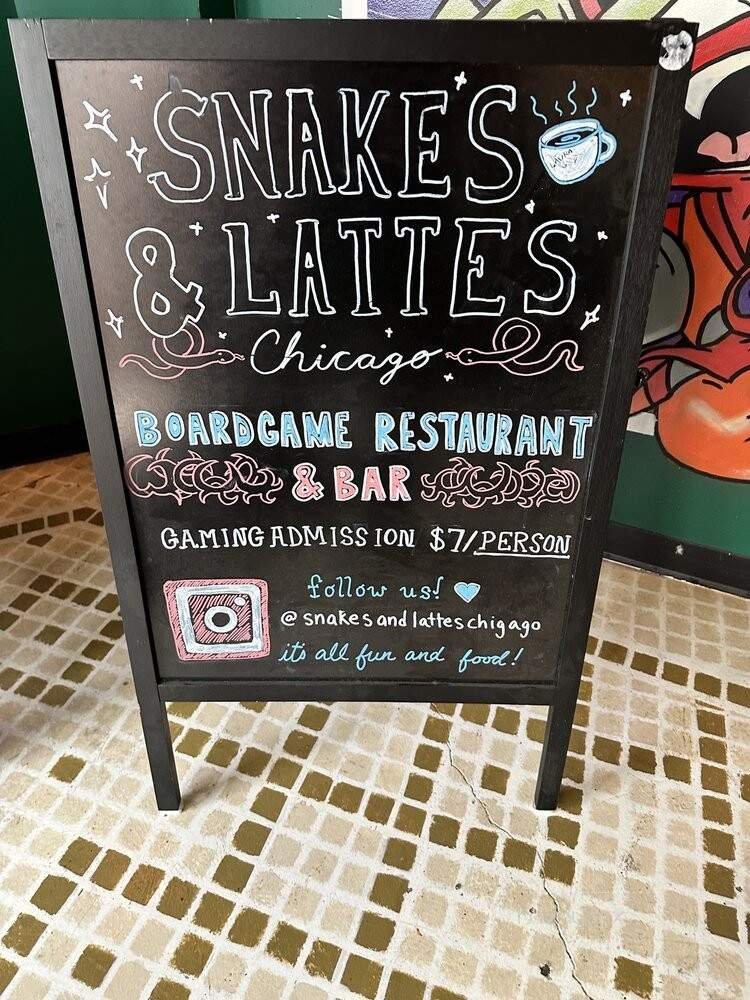 SNAKES
& LATTES
Chicago
BOARDGAME RESTAURANT
& BAR
GAMING ADMISSION $7/PERSON
follow us!
@snakesandlatteschigago
it's all fun and food!